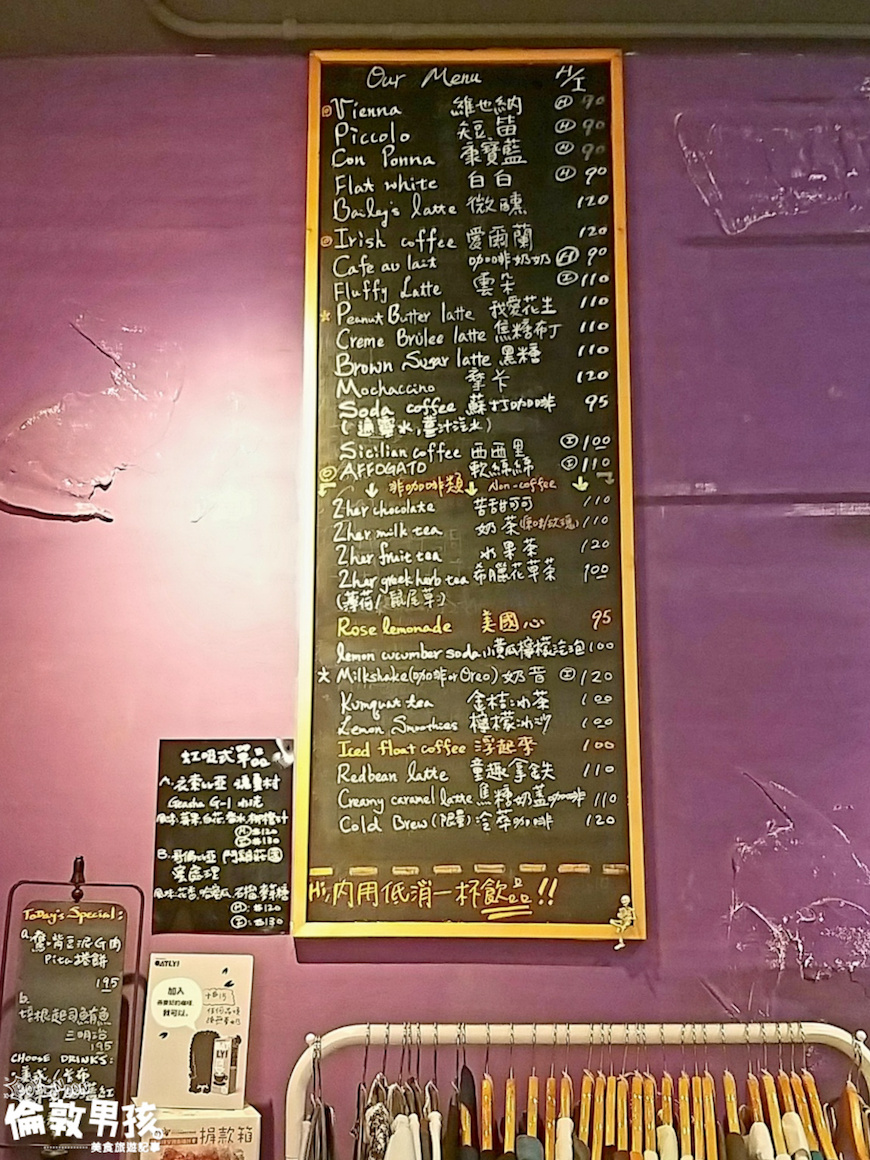 Our Menu H/I
Vienna 維也納 Ⓗ 90
Piccolo 短笛 Ⓗ 90
Con Ponna 康寶藍 Ⓗ 90
Flat white 白白 Ⓗ 90
Bailey's latte 微醺 120
Irish coffee 愛爾蘭 120
Cafe au lait 咖啡奶奶 Ⓗ 90
Fluffy Latte 雲朵 Ⓘ 110
☆ Peanut Butter latte 我愛花生 110
Creme Brûlee latte 焦糖布丁 110
Brown Sugar latte 黑糖 110
Mochaccino 摩卡 120
Soda coffee 蘇打咖啡 95
(通寧水,薑汁汽水)
Sicilian coffee 西西里 Ⓘ 100
AFFOGATO 軟綿綿 Ⓘ 110
↓ 非咖啡類 ↓ Non-coffee ↓
2her chocolate 苦甜可可 110
2her milk tea 奶茶(原味/玫瑰) 110
2her fruit tea 水果茶 120
2her greek herb tea 希臘花草茶 100
(薄荷/鼠尾草)
Rose lemonade 美國心 95
lemon cucumber soda 小黃瓜檸檬汽泡 100
☆ Milkshake(咖啡or Oreo) 奶昔 Ⓘ 120
Kumquat tea 金桔冰茶 100
Lemon Smoothies 檸檬冰沙 100
Iced float coffee 浮起來 100
Redbean latte 童趣拿鐵 110
Creamy caramel latte 焦糖奶蓋咖啡 110
Cold Brew (限量) 冷萃咖啡 120
Hi, 內用低消一杯飲品!!
虹吸式單品
A. 衣索比亞
Geisha G-1 水洗
Ⓗ $120
Ⓘ $130
B. 哥倫比亞 莊園
蜜處理
Ⓗ: $120
Ⓘ: $130
ToDay's Special:
a.
Pita捲餅
195
b.
培根起司鮪魚
三明治
195
CHOOSE DRINKS:
OATLY!
加入
就可以。
+$15
捐款箱
倫敦男孩
美食旅遊記事